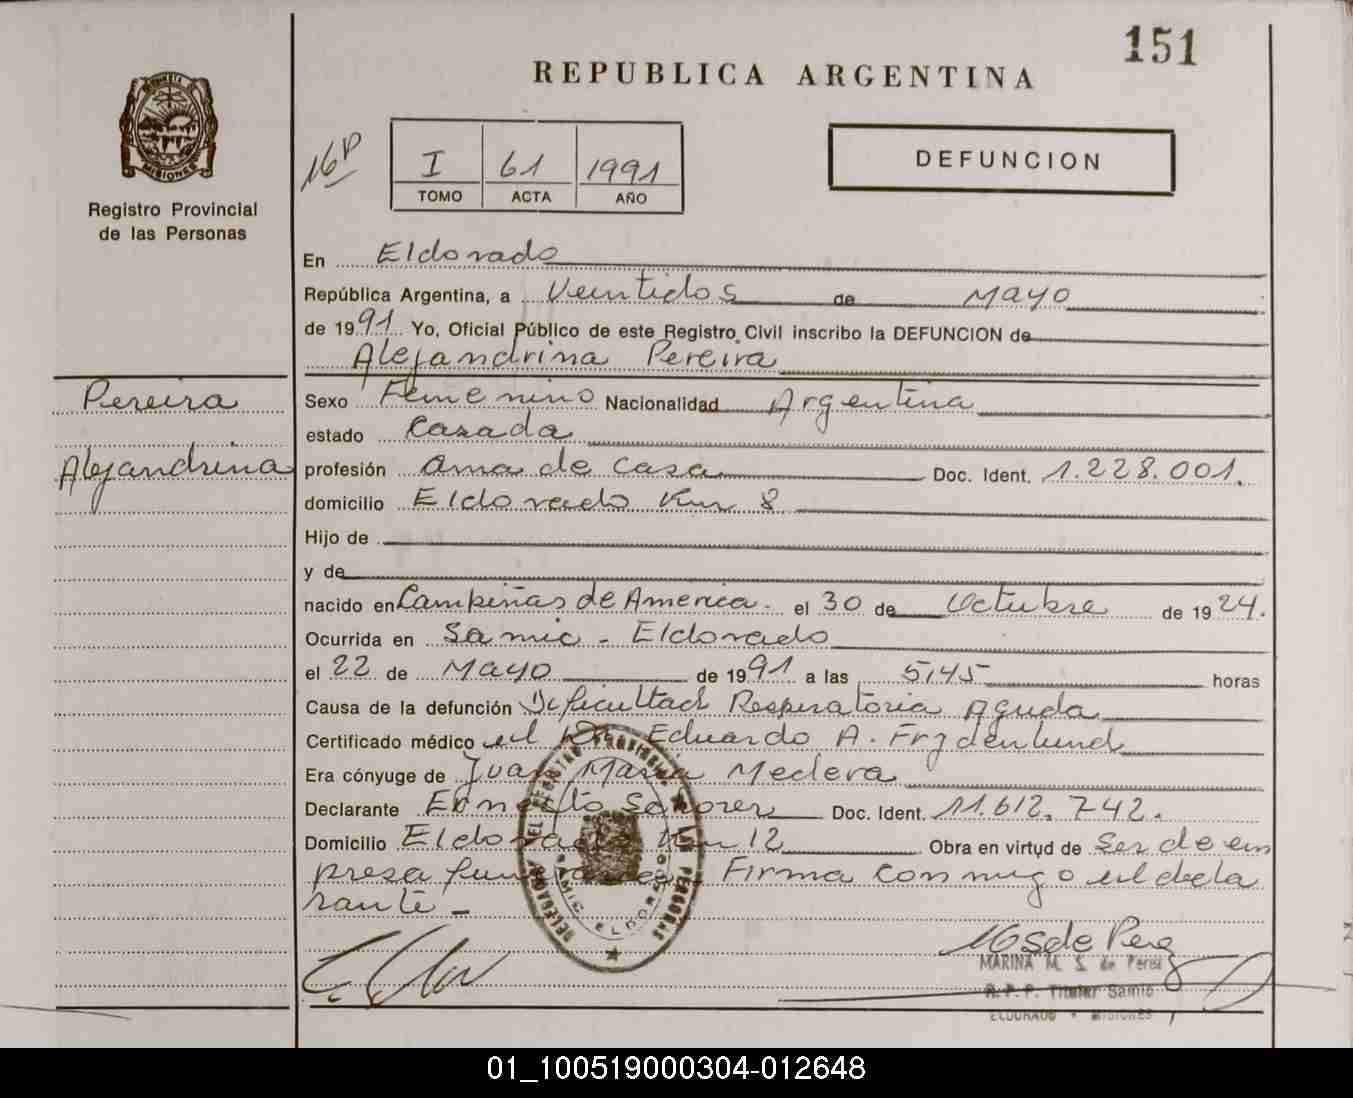 151
REPUBLICA ARGENTINA
MISIONES
Registro Provincial
de las Personas
16P
I 61 1991
TOMO ACTA AÑO
DEFUNCION
En Eldorado
República Argentina, a Veintidos de Mayo
de 1991 Yo, Oficial Público de este Registro Civil inscribo la DEFUNCION de
Alejandrina Pereira
Pereira
Alejandrina
Sexo Femenino Nacionalidad Argentina
estado Casada
profesión Ama de casa Doc. Ident. 1.228.001.
domicilio Eldorado Km 8
Hijo de
y de
nacido en Campiñas de America. el 30 de Octubre de 1924.
Ocurrida en Samic - Eldorado
el 22 de Mayo de 1991 a las 5,45 horas
Causa de la defunción Dificultad Respiratoria Aguda
Certificado médico el Dr. Eduardo A. Frydenlund
Era cónyuge de Juan Maria Medera
Declarante Ernesto Doc. Ident. 11.612.742.
Domicilio Eldorado Km 12 Obra en virtud de Ser de em
presa Firma conmigo el decla
rante -
DEL REGISTRO PROVINCIAL DE LAS PERSONAS
SAMIC ELDORADO
MARINA M. S. de Perez
R. P. P. Titular Samic
ELDORADO - MISIONES
01_100519000304-012648